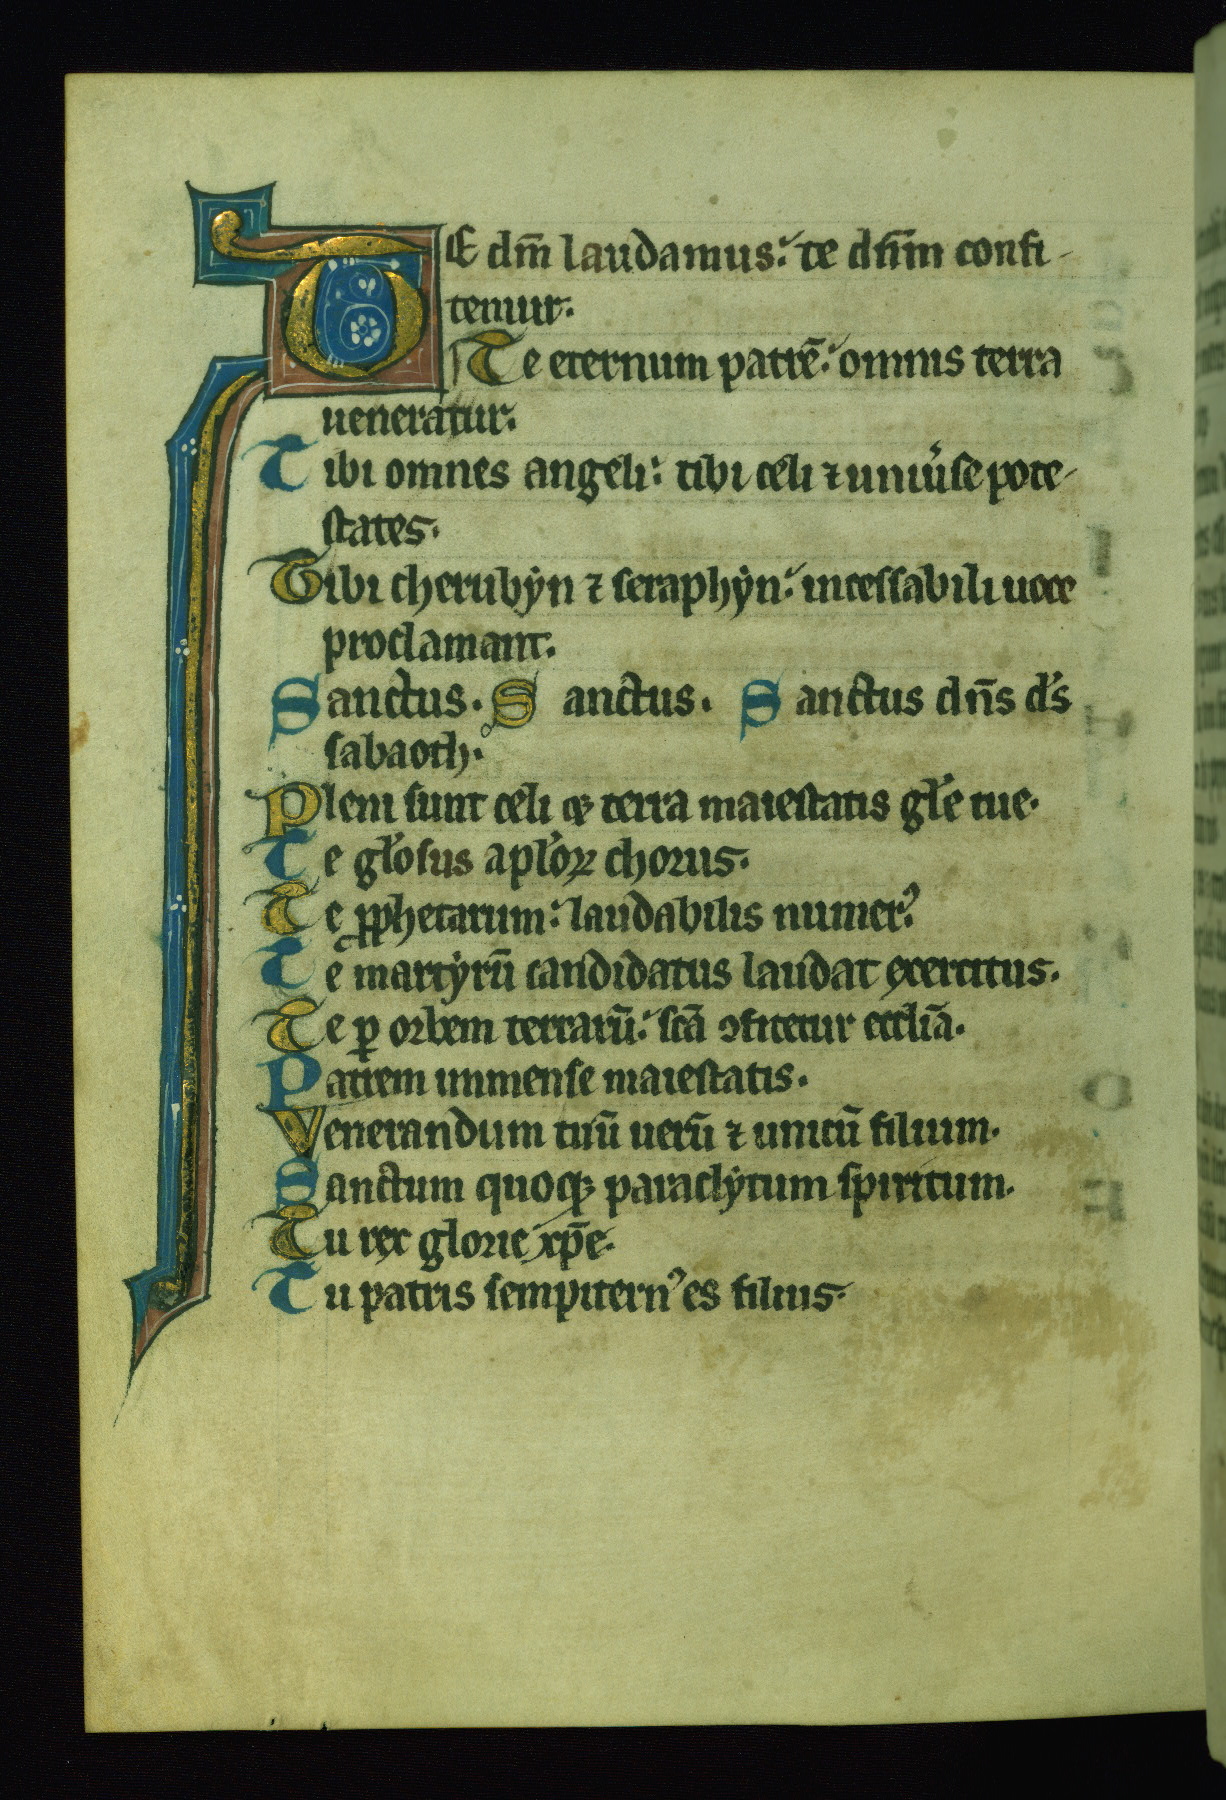 TE dm̄ laudamus: te dn̄m confi-
temur.
Te eternum patrē: omnis terra
ueneratur.
Tibi omnes angeli: tibi celi ⁊ uniu̾se pote-
states.
Tibi cherubyn ⁊ seraphyn: incessabili uoce
proclamant.
Sanctus. Sanctus. Sanctus dn̄s ds̄
sabaoth.
Pleni sunt celi ⁊ terra maiestatis gl̄e tue.
Te gl̄osus apl̄oꝝ chorus.
Te ꝓphetarum: laudabilis numerꝰ.
Te martyrū candidatus laudat exercitus.
Te ꝑ orbem terrarū: sc̄a ꝯfitetur eccl̄ia.
Patrem immense maiestatis.
Venerandum tuū uerū ⁊ unicū filium.
Sanctum quoqꝫ paraclytum spiritum.
Tu rex glorie xp̄e.
Tu patris sempiternꝰ es filius.